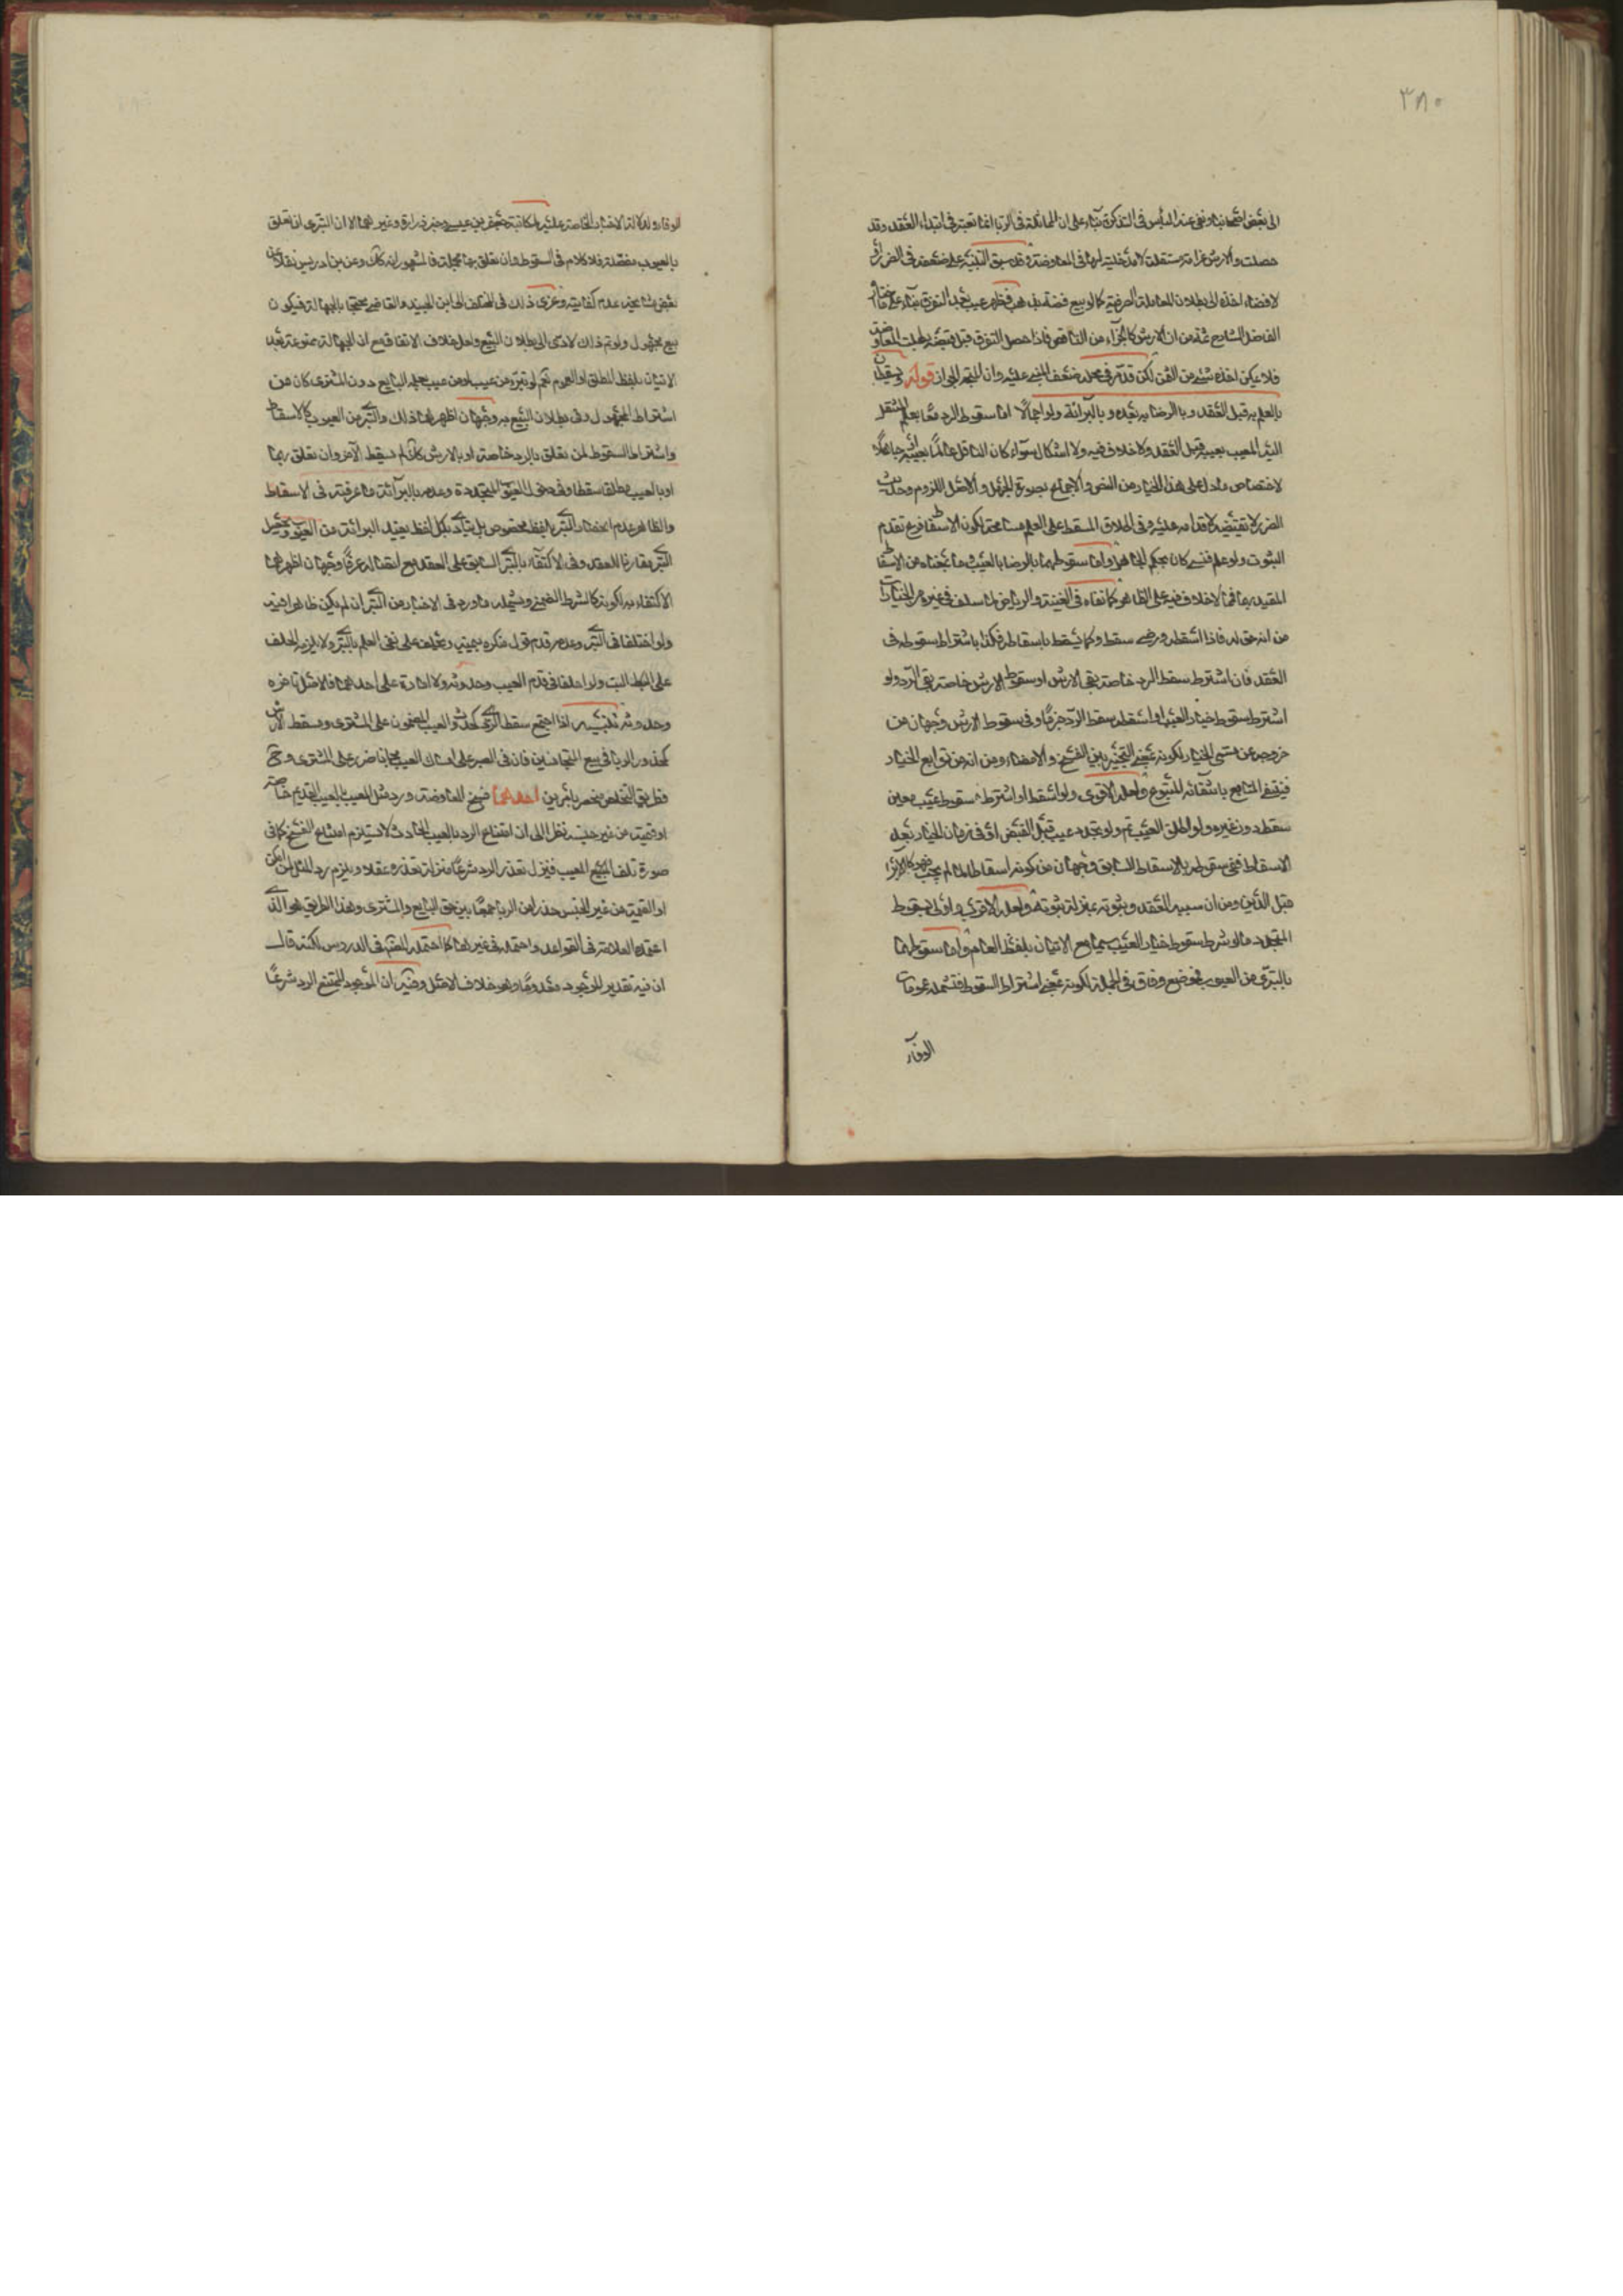 ٣٨٠
الى بعض اصحابنا ونفى عنه البأس فى التذكرة بناء على ان المماثلة فى الربا انما تعتبر فى ابتداء العقد وقد
حصلت والارش غرامة مستقلة لا مدخلية لها فى المعاوضة وقد سبق التنبيه على ضعفه فى الصرف او
لافضاء اخذه الى بطلان المعاملة الصرفية كما لو بيع فضة بذهب فظهر عيب بعد التفرق بناء على ما اختاره
الفاضل الشارح ثمة من ان الارش كالجزء من الناقص فاذا حصل التفرق قبل قبضه بطلت المعاوضة
فلا يمكن اخذ شىء من الثمن لكن قد مر فى محله ضعف المبنى عليه وان المتجه الجواز قوله ويسقطان
بالعلم به قبل العقد وبالرضا به بعده وبالبرائة ولو اجمالا اما سقوط الرد معا بعلم المنتقل
اليه المعيب بعيبه قبل العقد ولا خلاف فيه ولا اشكال سواء كان الناقل عالما بعيبه او جاهلا
لاختصاص ما دل على هذا الخيار من النص والاجماع بصورة الجهل والاصل اللزوم وحديث
الضرر لا يقتضيه لاقدامه عليه وفى اطلاق المسقط على العلم مسامحة لكون الاسقاط فرع تقدم
الثبوت ولو علم فنسى كان بحكم الجاهل واما سقوطهما بالرضا بالعيب وما بمعناه من الاسقاط
المقيد بهما فمما لا خلاف فيه على الظاهر كما نفاه فى الغنية والرياض لما سلف فى غيره من الخيارات
من انه حق له فاذا اسقطه ورضى سقط وكما يسقط باسقاطه فكذا باشتراط سقوطه فى
العقد فان اشترط سقط الرد خاصة بقى الارش او سقوط الارش خاصة بقى الرد ولو
اشترط سقوط خيار العيب او اسقطه سقط الرد جزما وفى سقوط الارش وجهان من
خروجه عن مسمى الخيار لكونه بمعنى التخيير بين الفسخ والامضاء ومن انه من توابع الخيار
فينتفى التابع بانتفاء المتبوع ولعله الاقوى ولو اسقط او اشترط سقوط عيب معين
سقط دون غيره ولو اطلق العيب عم ولو تجدد عيب قبل القبض او فى زمان الخيار بعد
الاسقاط ففى سقوطه بالاسقاط السابق وجهان من كونه اسقاطا لما لم يجب فهو كالابراء
قبل الدين ومن ان سببه العقد وثبوته بمنزلة ثبوته ولعله الاقوى واولى بسقوط
المتجدد ما لو شرط سقوط خيار العيب سيما مع الاتيان بلفظ العام واما سقوطهما
بالتبرى من العيوب فموضع وفاق فى الجملة لكونه بمعنى اشتراط السقوط فتشمله عمومات
الوفاء
الوفاء ولدلالة الاخبار الخاصة عليه كمكاتبة جعفر بن عيسى وخبر زرارة وغيرهما الا ان التبرى ان تعلق
بالعيوب مفصلة فلا كلام فى السقوط وان تعلق بها مجملة فالمشهور انه كاف وعن بن ادريس نقلا عن
بعض منا بخيه عدم كفايته وعزى ذلك فى المختلف الى ابن الجنيد والقاضى محتجا بالجهالة فيكون
بيع مجهول ولو تم ذلك لادى الى بطلان البيع ولعله خلاف الاتفاق مع ان الجهالة ممنوعة بعد
الاتيان بلفظ المطلق او العموم نعم لو تبرء من عيب او من عيب جهله البايع دون المشترى كان من
اشتراط المجهول وفى بطلان البيع به وجهان اظهرهما ذلك والتبرى من العيوب كالاسقاط
واشتراط السقوط لمن تعلق بالرد خاصة او بالارش كان لم يسقط الآخر وان تعلق بهما
او بالعيب مطلقا سقطا وفى دخول العيوب المتجددة وعدمه بالبرائة ما عرفته فى الاسقاط
والظاهر عدم انحصار التبرى بلفظ مخصوص بل يتأدى بكل لفظ يفيد البرائة عن العيوب ويحصل
التبرى مقارنا للعقد وفى الاكتفاء بالتبرى السابق على العقد مع اتصاله عرفا وجهان اظهرهما
الاكتفاء به لكونه كالشرط الضمنى ويشمله ما ورد فى الاخبار من التبرى ان لم يكن ظاهرا فيه
ولو اختلفا فى التبرى وعدمه قدم قول منكره بيمينه ويحلف على نفى العلم بالتبرى ولا يلزمه الحلف
على البت ولو اختلفا فى قدم العيب وحدوثه ولا امارة على احدهما فالاصل تاخره
وحدوثه تنبيه اذا اجتمع سقط الرد كحدوث العيب المضمون على المشترى ومسقط الارش
كمحذور الربا فى بيع المتجانسين فان فى الصبر على امساك العيب مجانا ضرر على المشترى وح
فطريق التخلص منحصر بامرين احدهما فسخ المعاوضة ورد مثل المعيب بالعيب القديم خاصة
او قيمته من غير جنسه نظرا الى ان امتناع الرد بالعيب الحادث لا يستلزم امتناع الفسخ كما فى
صورة تلف المبيع المعيب فينزل تعذر الرد شرعا منزلة تعذره عقلا ويلزم رد المثل ان امكن
او القيمة من غير الجنس حذرا من الربا جمعا بين حق البايع والمشترى وهذا الطريق هو الذى
اعتمده العلامة فى القواعد واحتمله فى غيرها كما احتمله الشهيد فى الدروس لكنه قال
ان فيه تقدير الموجود معدوما وهو خلاف الاصل وفيه ان الموجود الممتنع الرد شرعا